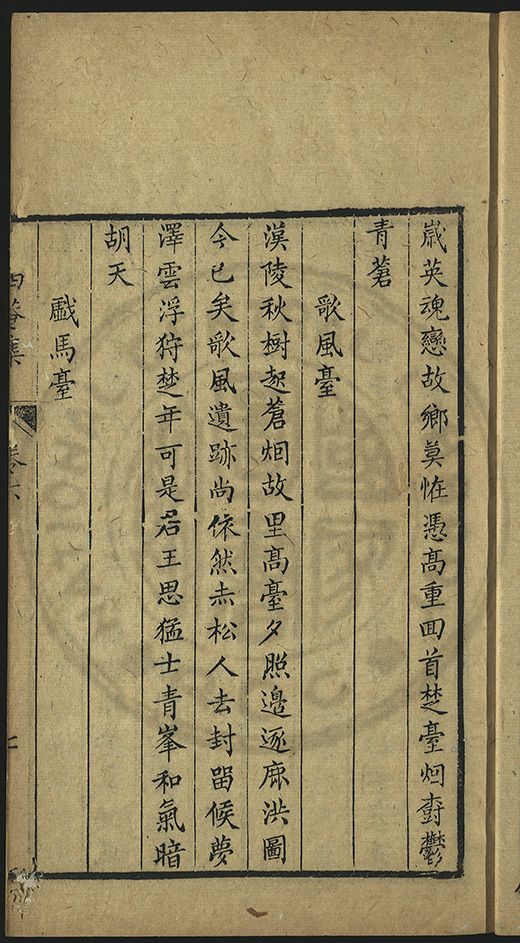 嵗英魂戀故鄉莫恠憑高重囬首楚臺烟樹鬱
青蒼
歌風臺
漢陵秋樹起蒼烟故里高臺夕照邉逐鹿洪圖
今已矣歌風遺跡尚依然赤松人去封畱候夢
澤雲浮狩楚年可是君王思猛士青峯和氣暗
胡天
戲馬臺
四菴集 卷六
七